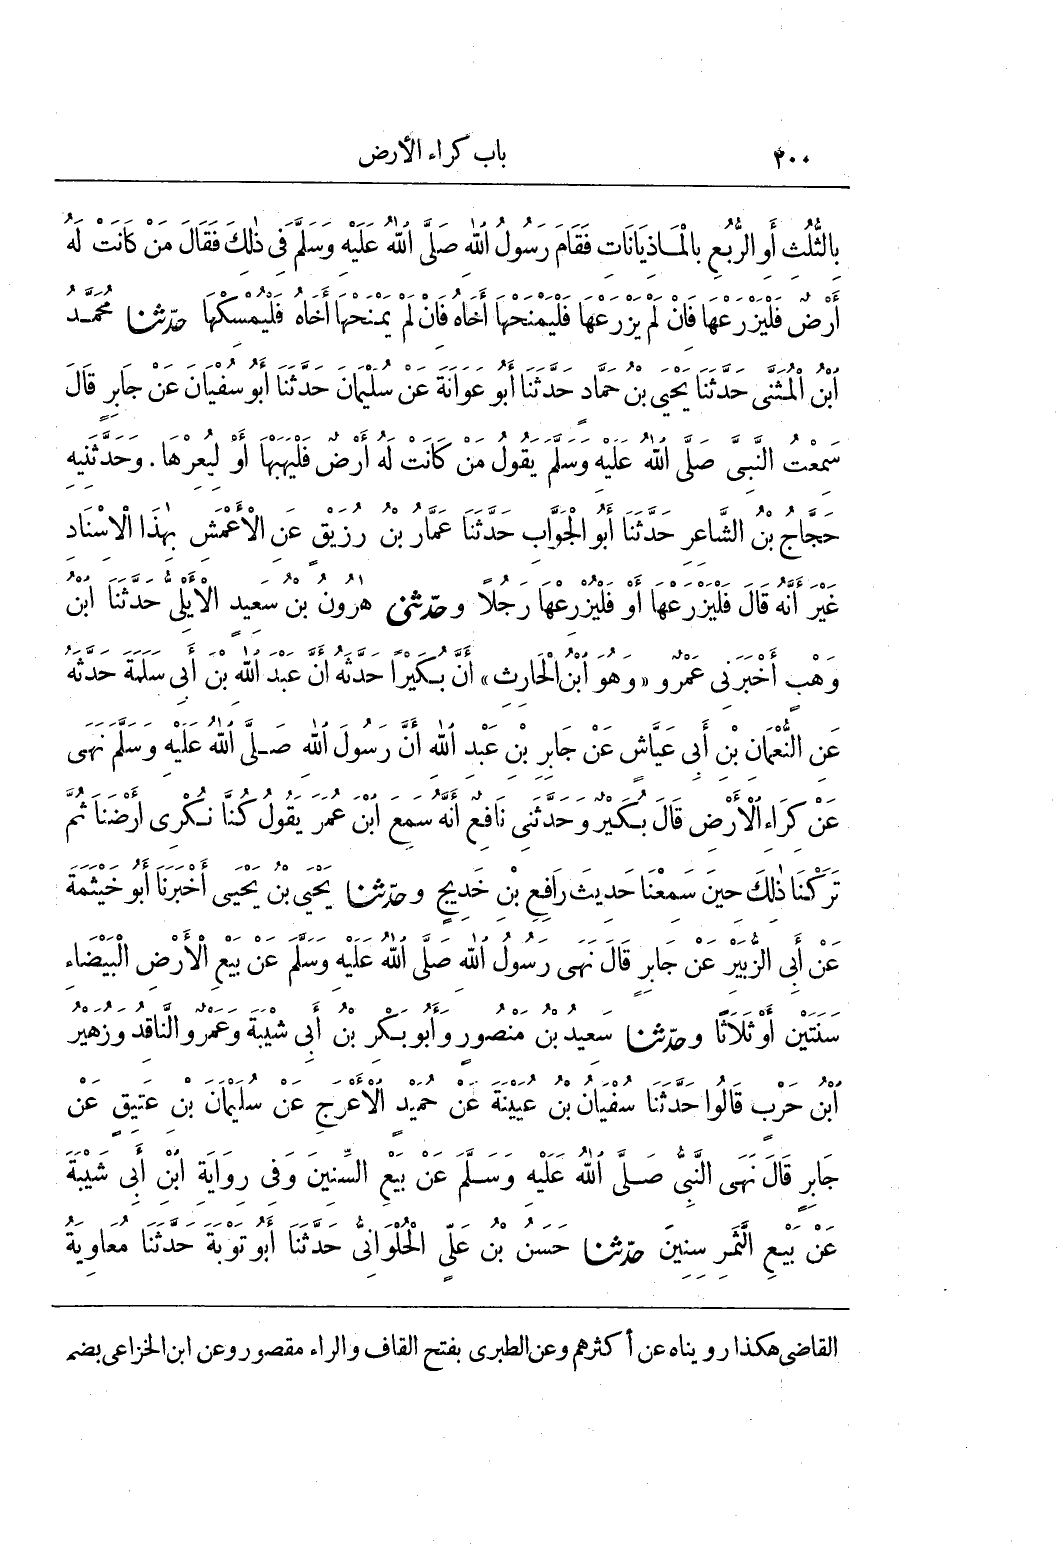 ٢٠٠ باب كراء الأرض
بِالثُّلُثِ أَوِ الرُّبُعِ بِالْمَاذِيَانَاتِ فَقَامَ رَسُولُ اللّٰهِ صَلَّى اللّٰهُ عَلَيْهِ وَسَلَّمَ فِى ذٰلِكَ فَقَالَ مَنْ كَانَتْ لَهُ
أَرْضٌ فَلْيَزْرَعْهَا فَانْ لَمْ يَزْرَعْهَا فَلْيَمْنَحْهَا أَخَاهُ فَانْ لَمْ يَمْنَحْهَا أَخَاهُ فَلْيُمْسِكْهَا حدّثنا مُحَمَّدُ
ابْنُ الْمُثَنَّى حَدَّثَنَا يَحْيَى بْنُ حَمَّادٍ حَدَّثَنَا أَبُو عَوَانَةَ عَنْ سُلَيْمَانَ حَدَّثَنَا أَبُو سُفْيَانَ عَنْ جَابِرٍ قَالَ
سَمِعْتُ النَّبِىَّ صَلَّى اللّٰهُ عَلَيْهِ وَسَلَّمَ يَقُولُ مَنْ كَانَتْ لَهُ أَرْضٌ فَلْيَهَبْهَا أَوْ لِيُعِرْهَا . وَحَدَّثَنِيهِ
حَجَّاجُ بْنُ الشَّاعِرِ حَدَّثَنَا أَبُو الْجَوَّابِ حَدَّثَنَا عَمَّارُ بْنُ رُزَيْقٍ عَنِ الْأَعْمَشِ بِهٰذَا الْاسْنَادِ
غَيْرَ أَنَّهُ قَالَ فَلْيَزْرَعْهَا أَوْ فَلْيُزْرِعْهَا رَجُلًا وحدّثنى هٰرُونُ بْنُ سَعِيدٍ الْأَيْلِىُّ حَدَّثَنَا ابْنُ
وَهْبٍ أَخْبَرَنِى عَمْرٌو «وَهُوَ ابْنُ الْحَارِثِ» أَنَّ بُكَيْرًا حَدَّثَهُ أَنَّ عَبْدَ اللّٰهِ بْنَ أَبِى سَلَمَةَ حَدَّثَهُ
عَنِ النُّعْمَانِ بْنِ أَبِى عَيَّاشٍ عَنْ جَابِرِ بْنِ عَبْدِ اللّٰهِ أَنَّ رَسُولَ اللّٰهِ صَلَّى اللّٰهُ عَلَيْهِ وَسَلَّمَ نَهَى
عَنْ كِرَاءِ الْأَرْضِ قَالَ بُكَيْرٌ وَحَدَّثَنِى نَافِعٌ أَنَّهُ سَمِعَ ابْنَ عُمَرَ يَقُولُ كُنَّا نُكْرِى أَرْضَنَا ثُمَّ
تَرَكْنَا ذٰلِكَ حِينَ سَمِعْنَا حَدِيثَ رَافِعِ بْنِ خَدِيجٍ وحدّثنا يَحْيَى بْنُ يَحْيَى أَخْبَرَنَا أَبُو خَيْثَمَةَ
عَنْ أَبِى الزُّبَيْرِ عَنْ جَابِرٍ قَالَ نَهَى رَسُولُ اللّٰهِ صَلَّى اللّٰهُ عَلَيْهِ وَسَلَّمَ عَنْ بَيْعِ الْأَرْضِ الْبَيْضَاءِ
سَنَتَيْنِ أَوْ ثَلَاثًا وحدّثنا سَعِيدُ بْنُ مَنْصُورٍ وَأَبُو بَكْرِ بْنُ أَبِى شَيْبَةَ وَعَمْرٌو النَّاقِدُ وَزُهَيْرُ
ابْنُ حَرْبٍ قَالُوا حَدَّثَنَا سُفْيَانُ بْنُ عُيَيْنَةَ عَنْ حُمَيْدٍ الْأَعْرَجِ عَنْ سُلَيْمَانَ بْنِ عَتِيقٍ عَنْ
جَابِرٍ قَالَ نَهَى النَّبِىُّ صَلَّى اللّٰهُ عَلَيْهِ وَسَلَّمَ عَنْ بَيْعِ السِّنِينَ وَفِى رِوَايَةِ ابْنِ أَبِى شَيْبَةَ
عَنْ بَيْعِ الثَّمَرِ سِنِينَ حدّثنا حَسَنُ بْنُ عَلِيٍّ الْحُلْوَانِىُّ حَدَّثَنَا أَبُو تَوْبَةَ حَدَّثَنَا مُعَاوِيَةُ
القاضى هكذا رويناه عن أكثرهم وعن الطبرى بفتح القاف والراء مقصور وعن ابن الخزاعى بضم